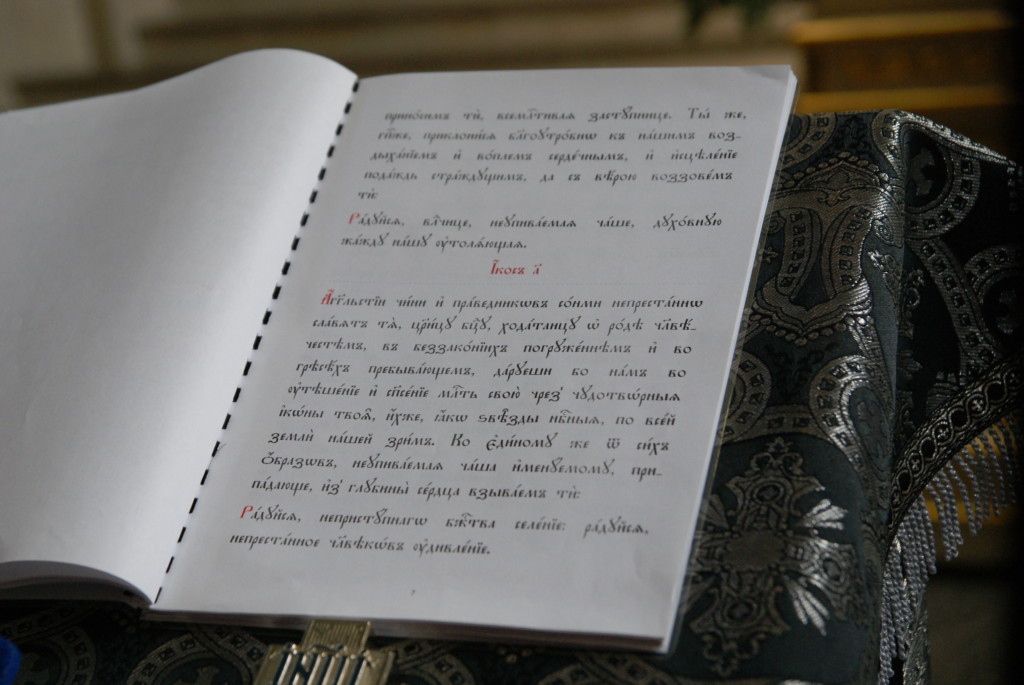 прино́симъ тѝ, всемлⷭ҇тивая застꙋ́пнице. Ты́ же,
гп҃же, приклони́ся бл҃гоꙋтро́бнѡ къ на́шимъ воз-
дыха́ніемъ и҆ во́племъ серде́чнымъ, и҆ и҆сцѣле́ніе
пода́ждь стра́ждꙋщимъ, да съ вѣ́рою воззове́мъ
тѝ:
Ра́дꙋйся, влⷣчице, неꙋпива́емая ча́ше, дꙋхо́внꙋю
жа́ждꙋ на́шꙋ ᲂу҆толѧ́ющая.
І҆́косъ а҃
А҆́гг҃льстіи чи́ни и҆ пра́ведникѡвъ со́нми непреста́ннѡ
сла́вятъ тѧ̀, цр҃и́цꙋ бц҃ꙋ, хода́таицꙋ ѡ҆ ро́дѣ чл҃вѣ́-
честѣмъ, въ беззако́ніихъ погрꙋже́ннѣмъ и҆ во
грѣсѣ́хъ пребыва́ющемъ, да́рꙋеши бо на́мъ во
ᲂу҆тѣше́ніе и҆ спⷭ҇е́ніе млⷭ҇ть свою̀ чрез̾ чꙋдотвѡ́рныя
і҆кѡ́ны твоѧ̑, и҆́хже, ꙗ҆́кѡ ѕвѣ́зды нбⷭ҇ныя, по все́й
землѝ на́шей зри́мъ. Ко є҆ди́номꙋ же ѿ си́хъ
ѻ҆́бразѡвъ, неꙋпива́емая ча́ша и҆менꙋ́емомꙋ, при-
па́дающе, и҆з̾ глꙋбины̀ се́рдца взыва́емъ тѝ:
Ра́дꙋйся, непристꙋ́пнагѡ бжⷭ҇тва̀ селе́ніе: ра́дꙋйся,
непреста́нное чл҃вѣ́кѡвъ ᲂу҆дивле́ніе.